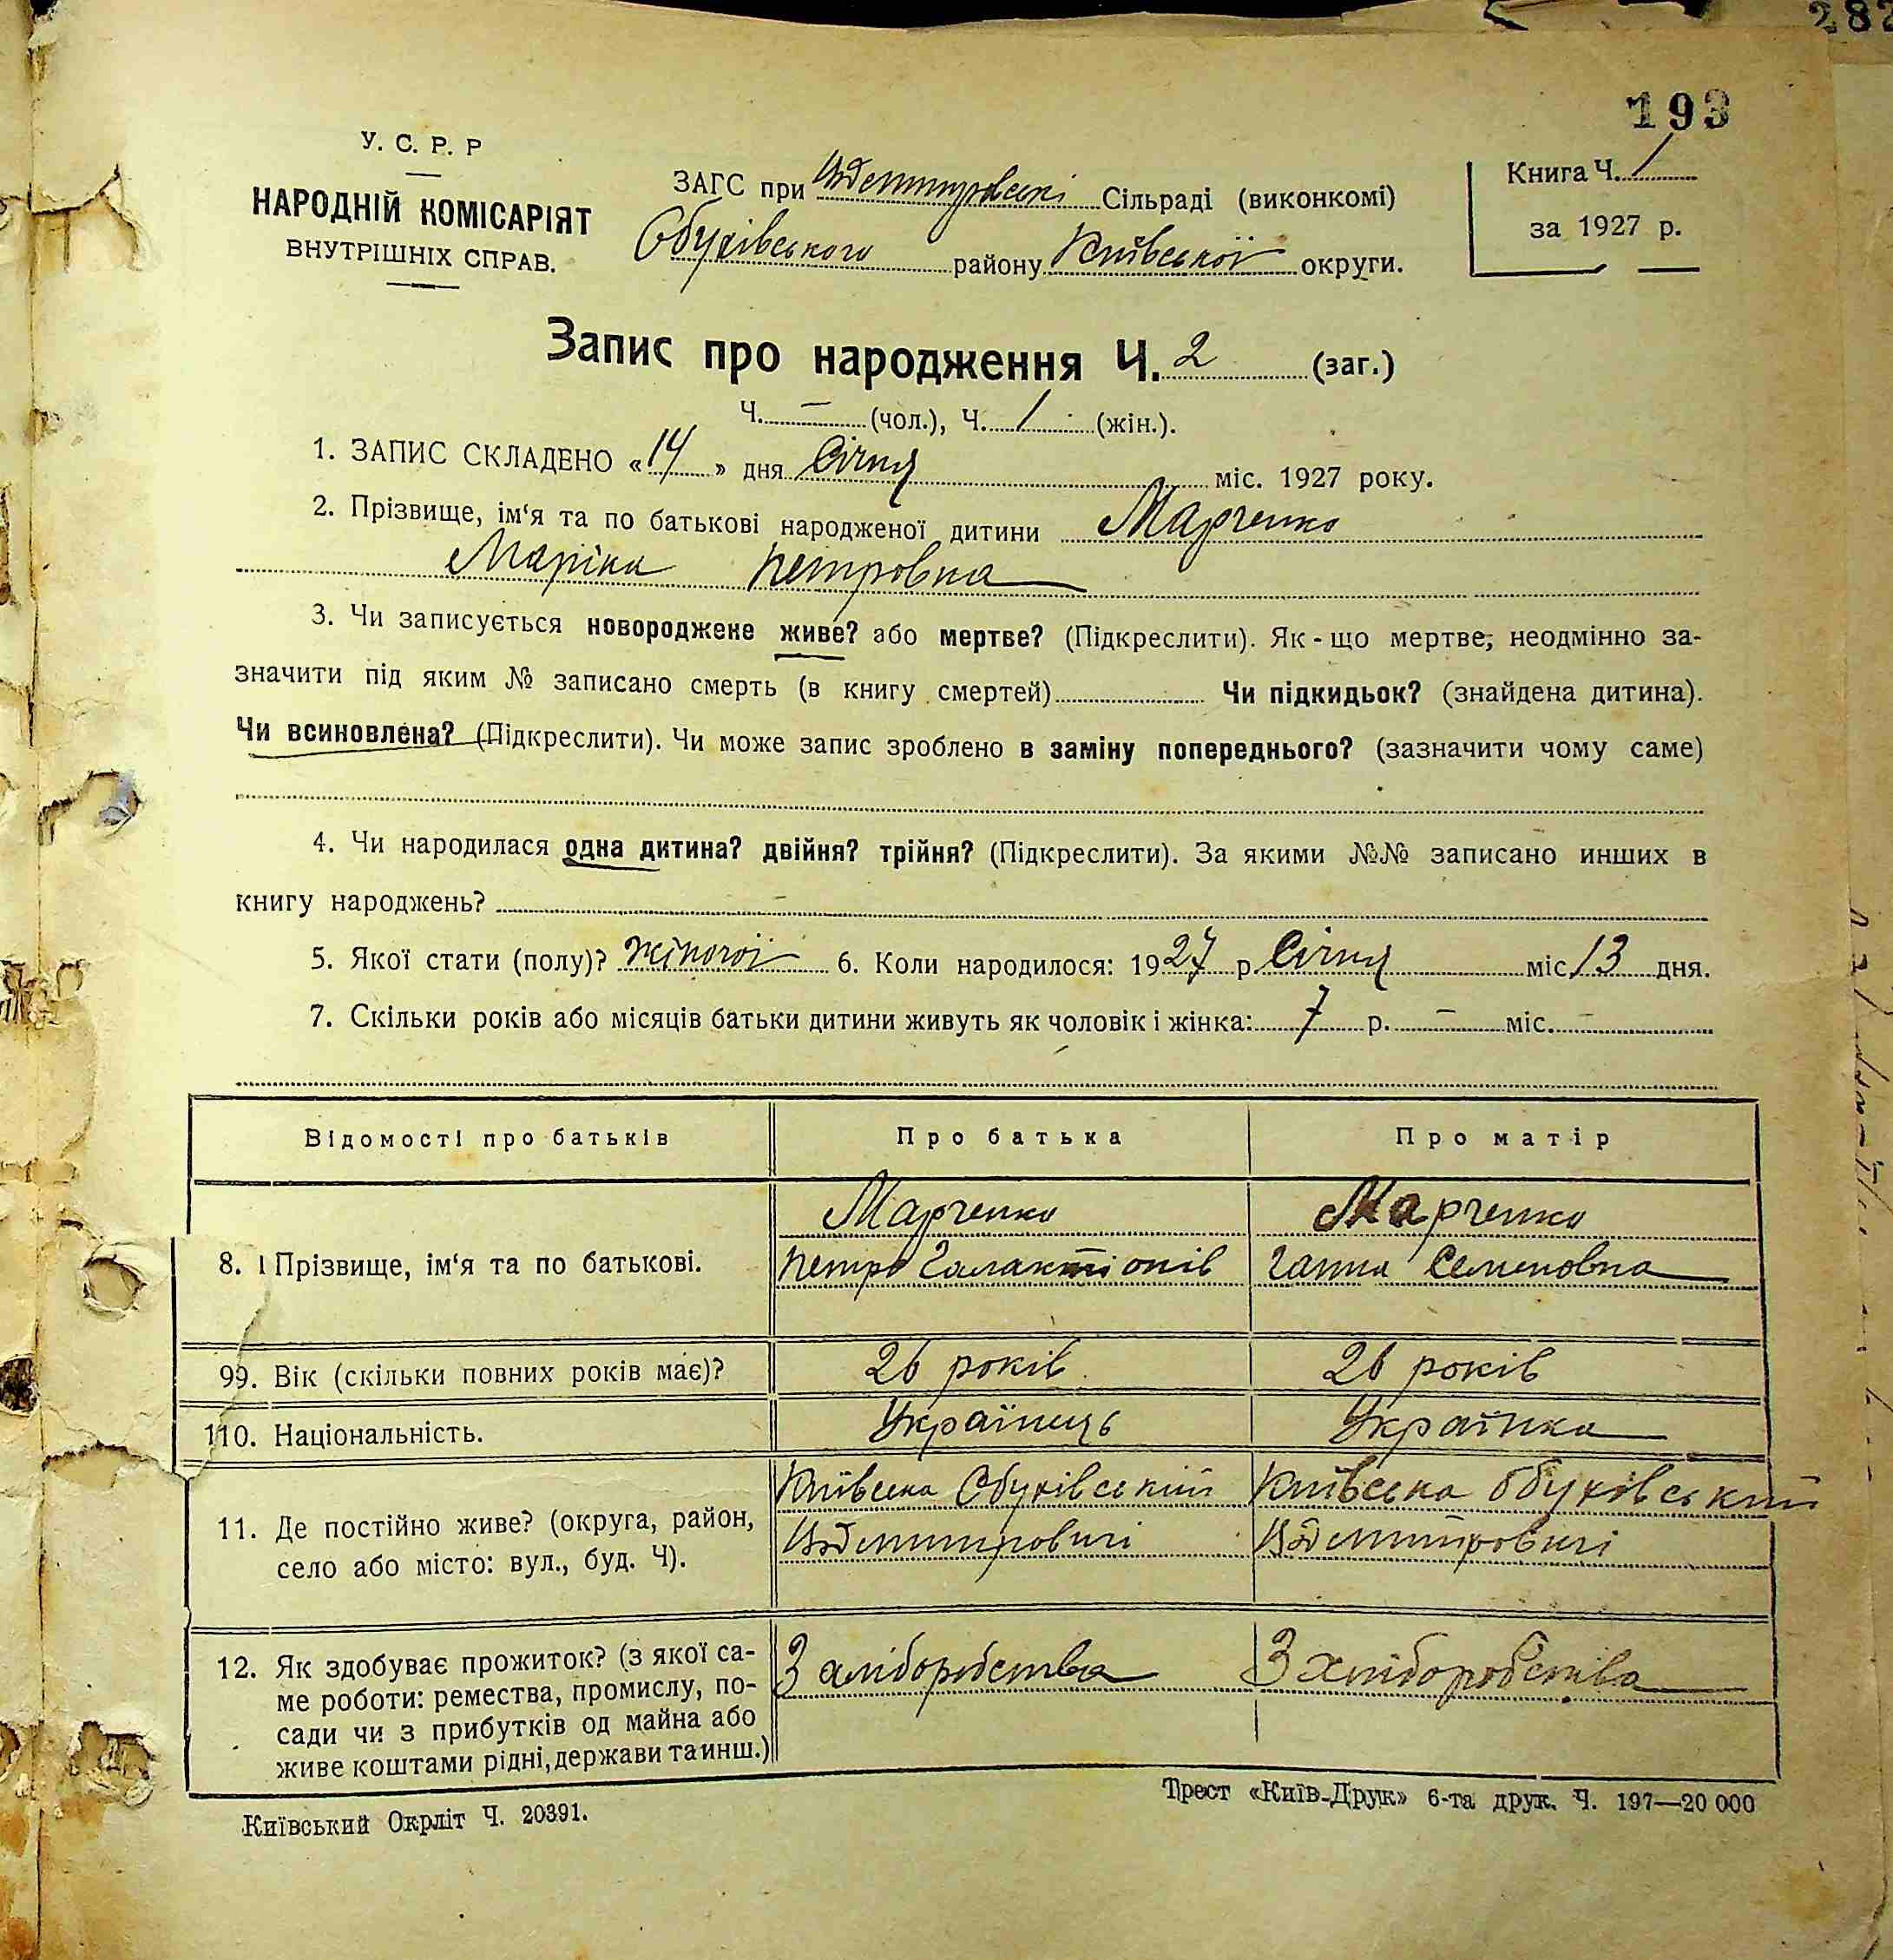 193
У. С. Р. Р
НАРОДНІЙ КОМІСАРІЯТ
ВНУТРІШНІХ СПРАВ.
ЗАГС при Сільраді (виконкомі)
Обухівського району Київської округи.
Книга Ч. 1
за 1927 р.
Запис про народження Ч. 2 (заг.)
Ч. – (чол.), Ч. 1 (жін.).
1. ЗАПИС СКЛАДЕНО «14» дня Січня міс. 1927 року.
2. Прізвище, ім‘я та по батькові народженої дитини Марченко
Маріна Петровна
3. Чи записується новороджене живе? або мертве? (Підкреслити). Як-що мертве, неодмінно за-
значити під яким № записано смерть (в книгу смертей) Чи підкидьок? (знайдена дитина).
Чи всиновлена? (Підкреслити). Чи може запис зроблено в заміну попереднього? (зазначити чому саме)
4. Чи народилася одна дитина? двійня? трійня? (Підкреслити). За якими №№ записано инших в
книгу народжень? –
5. Якої стати (полу)? жіночої 6. Коли народилося: 1927 р. Січня міс 13 дня.
7. Скільки років або місяців батьки дитини живуть як чоловік і жінка: 7 р. – міс. –
Відомості про батьків Про батька Про матір
Марченко Марченко
8. Прізвище, ім‘я та по батькові. Петро Галактіонів Ганна Семеновна
99. Вік (скільки повних років має)? 26 років 26 років
110. Національність. Українець Українка
Київська Обухівський Київська Обухівський
11. Де постійно живе? (округа, район,
село або місто: вул., буд. Ч).
12. Як здобуває прожиток? (з якої са- З хліборобства З хліборобства
ме роботи: ремества, промислу, по-
сади чи з прибутків од майна або
живе коштами рідні, держави та инш.)
Київський Окрліт Ч. 20391.
Трест «Київ-Друк» 6-та друк. Ч. 197—20 000